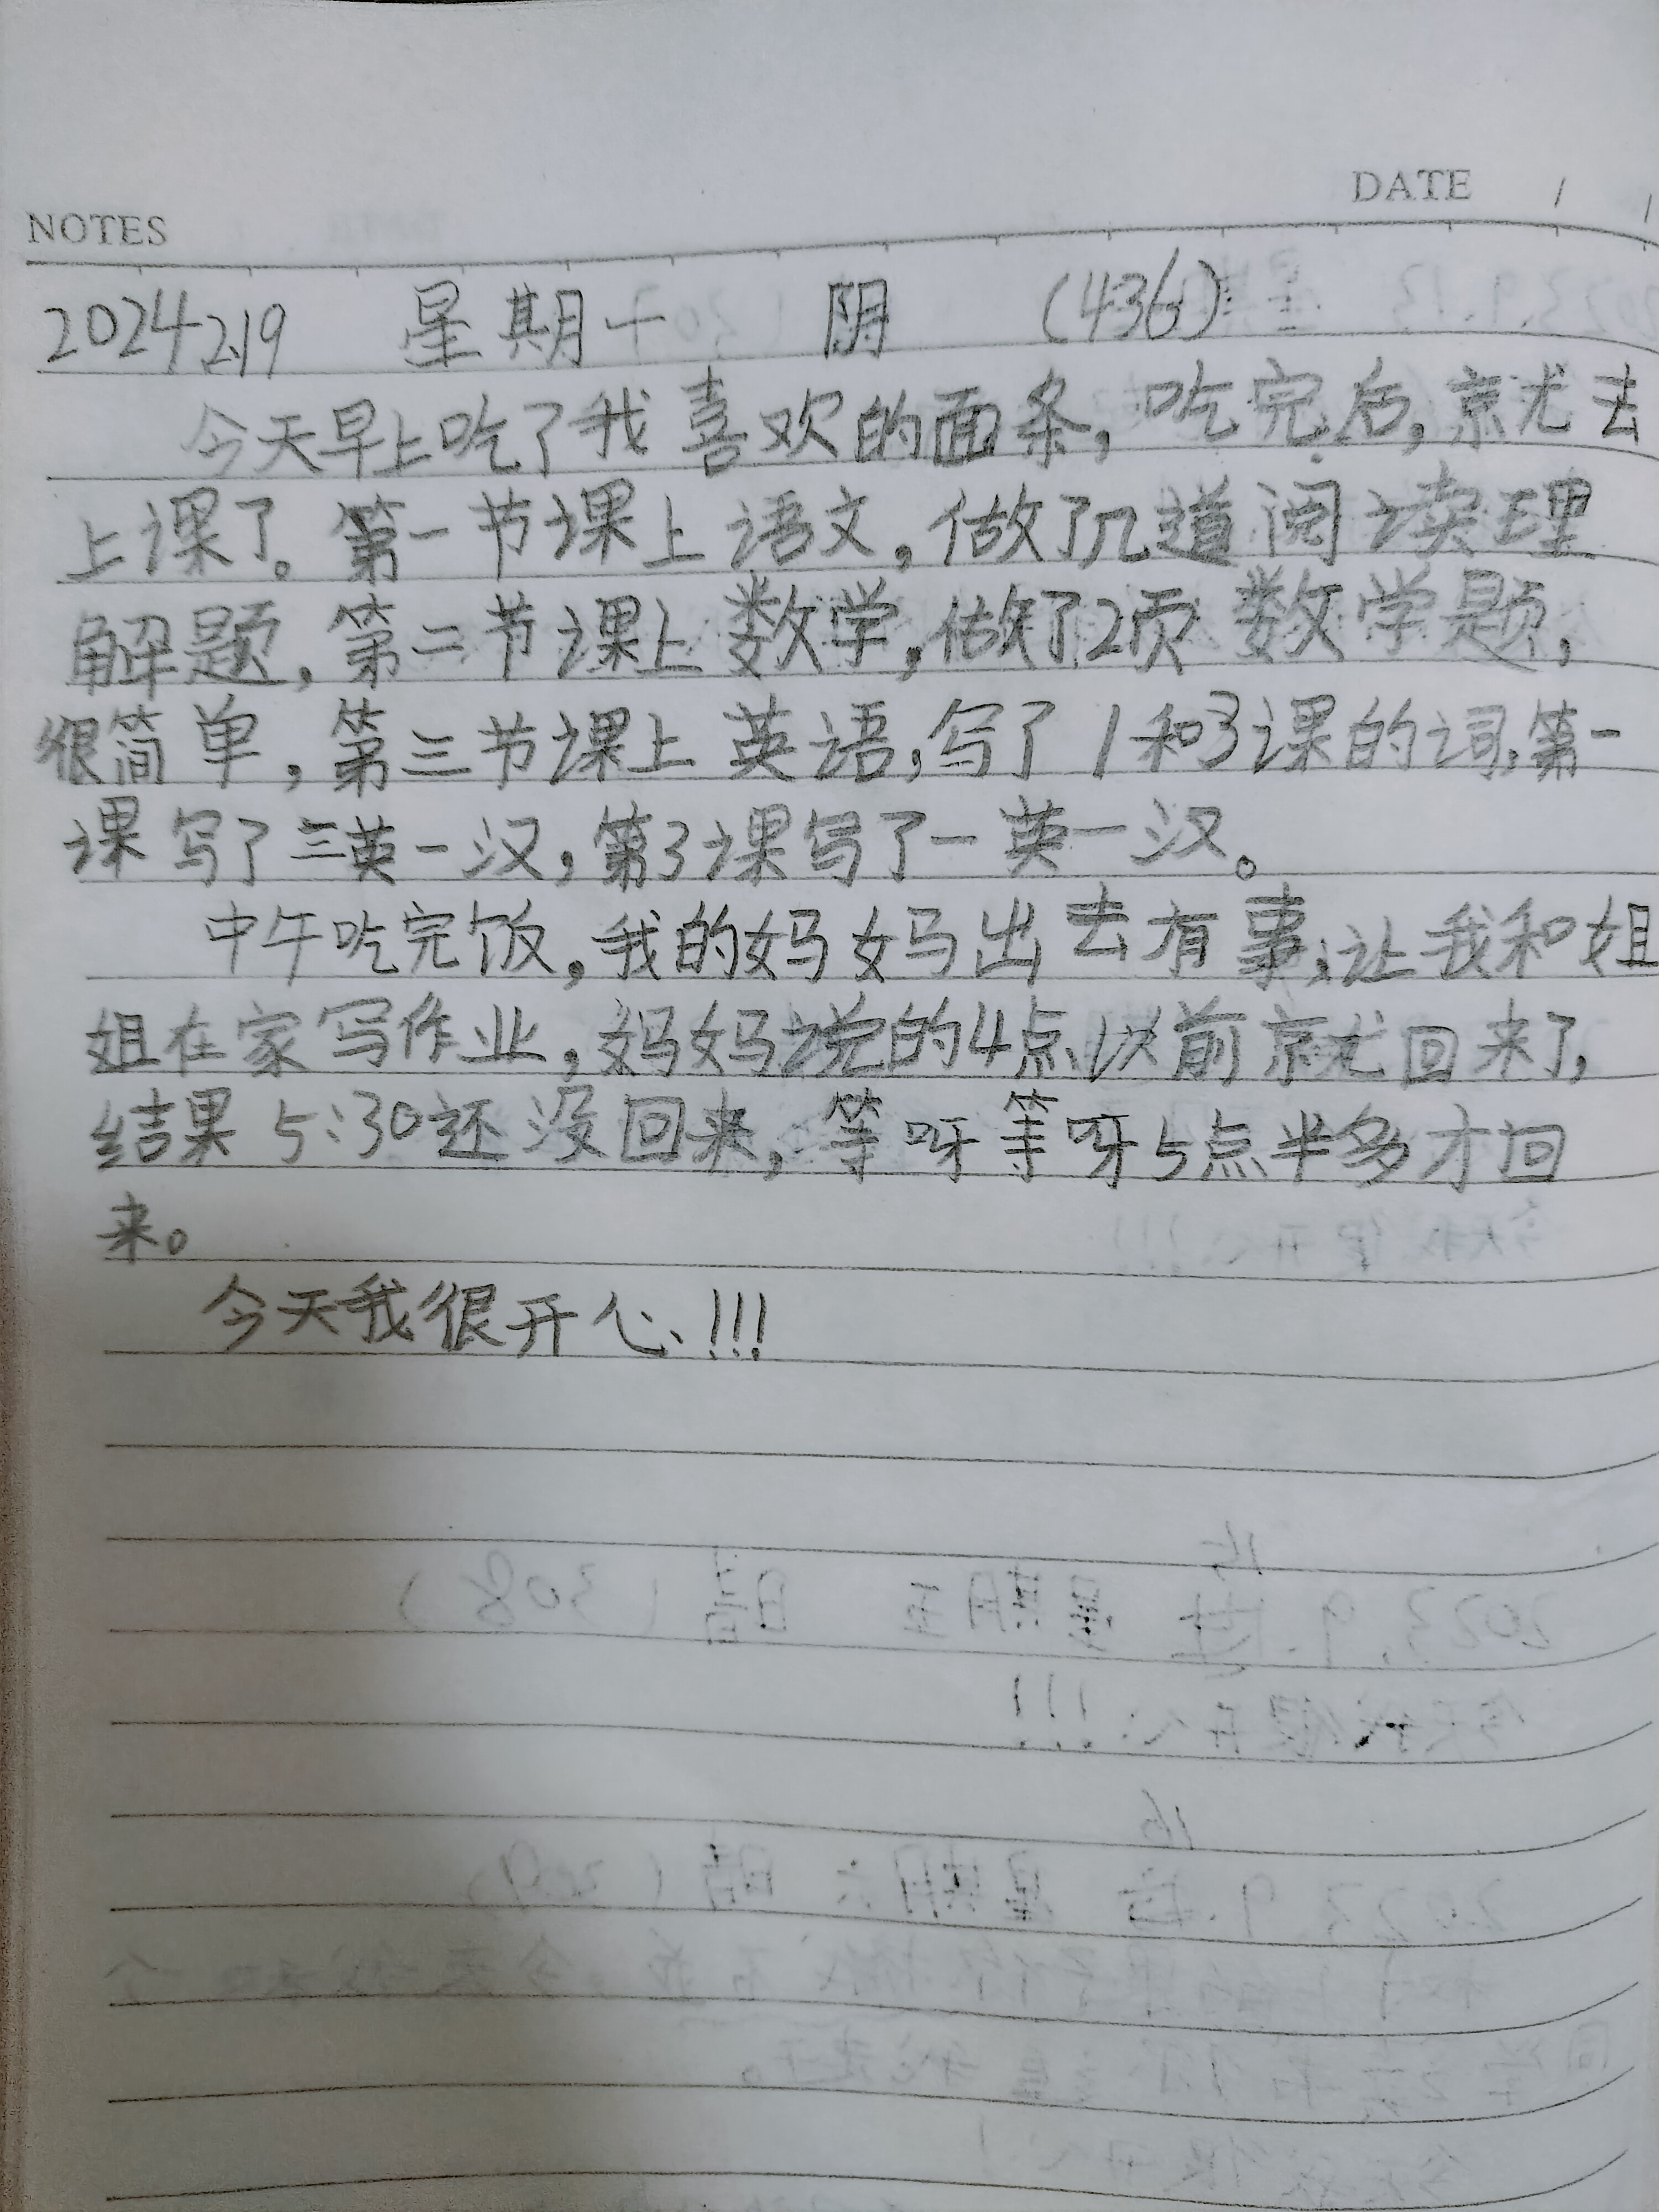 NOTES DATE / /
2024 2.19 星期一 阴 (436)
今天早上吃了我喜欢的面条，吃完后，就去
上课了。第一节课上语文，做了几道阅读理
解题，第二节课上数学，做了2页数学题，
很简单，第三节课上英语，写了1和3课的词，第一
课写了三英一汉，第3课写了一英一汉。
中午吃完饭，我的妈妈出去有事，让我和姐
姐在家写作业，妈妈说的4点以前就回来了，
结果5:30还没回来，等呀等呀5点半多才回
来。
今天我很开心!!!